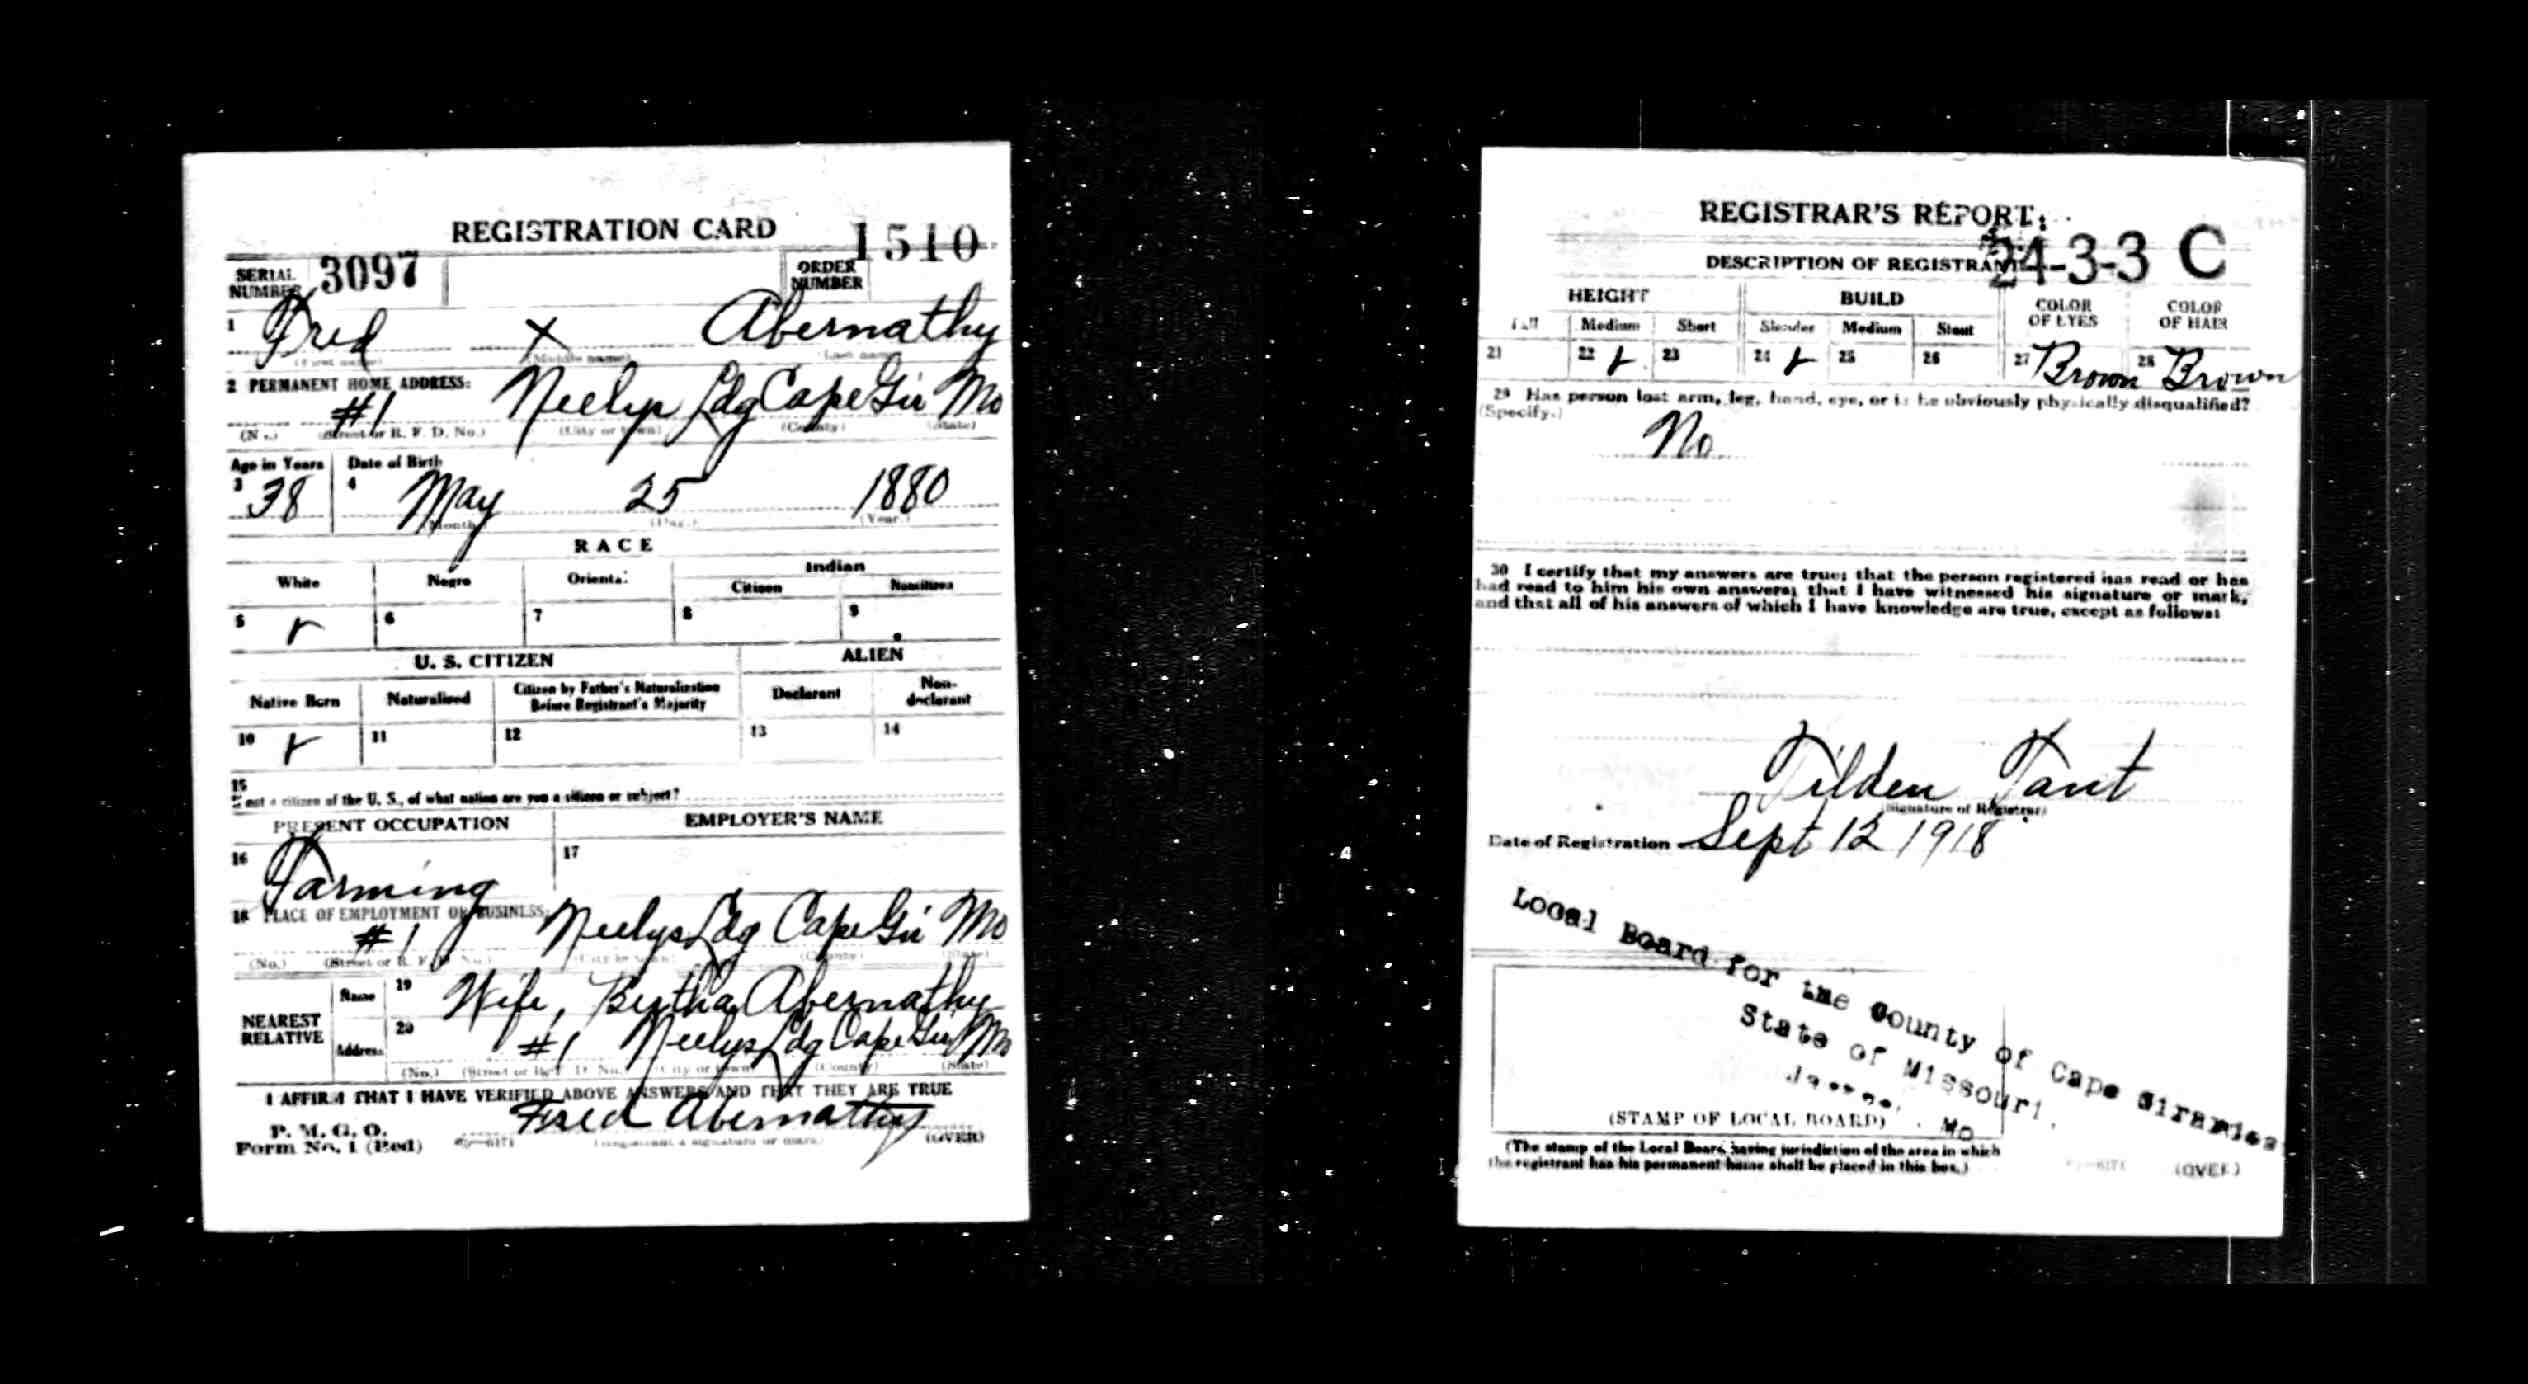 REGISTRATION CARD
1510
SERIAL NUMBER 3097
ORDER NUMBER
1 Fred X Abernathy
(First name) (Middle name) (Last name)
2 PERMANENT HOME ADDRESS:
#1 Neelys Ldg Cape Gir Mo
(No.) (Street or R. F. D. No.) (City or town) (County) (State)
Age in Years Date of Birth
3 38 4 May 25 1880
(Month) (Day.) (Year.)
RACE
White Negro Oriental Indian
Citizen Noncitizen
5 6 7 8 9
U. S. CITIZEN ALIEN
Native Born Naturalized Citizen by Father's Naturalization Before Registrant's Majority Declarant Non-declarant
10 11 12 13 14
15
If not a citizen of the U. S., of what nation are you a citizen or subject?
PRESENT OCCUPATION EMPLOYER'S NAME
16 Farming 17
18 PLACE OF EMPLOYMENT OR BUSINESS:
#1 Neelys Ldg Cape Gir Mo
(No.) (Street or R. F. D. No.) (City or town) (County) (State)
NEAREST RELATIVE
Name 19 Wife, Bertha Abernathy
Address 20 #1 Neelys Ldg Cape Gir Mo
(No.) (Street or R. F. D. No.) (City or town) (County) (State)
I AFFIRM THAT I HAVE VERIFIED ABOVE ANSWERS AND THAT THEY ARE TRUE
P. M. G. O.
Form No. 1 (Red) Fred Abernathy
(Registrant's signature or mark) (OVER)
REGISTRAR'S REPORT
24-3-3 C
DESCRIPTION OF REGISTRANT
HEIGHT BUILD COLOR OF EYES COLOR OF HAIR
Tall Medium Short Slender Medium Stout
21 22 23 24 25 26 27 Brown 28 Brown
29 Has person lost arm, leg, hand, eye, or is he obviously physically disqualified?
(Specify.)
No
30 I certify that my answers are true; that the person registered has read or has
had read to him his own answers; that I have witnessed his signature or mark,
and that all of his answers of which I have knowledge are true, except as follows:
Tilden Tant
(Signature of Registrar)
Date of Registration Sept 12 1918
Local Board for the County of Cape Girardeau
State of Missouri.
Jackson, Mo
(STAMP OF LOCAL BOARD)
(The stamp of the Local Board having jurisdiction of the area in which
the registrant has his permanent home shall be placed in this box.)
(OVER)